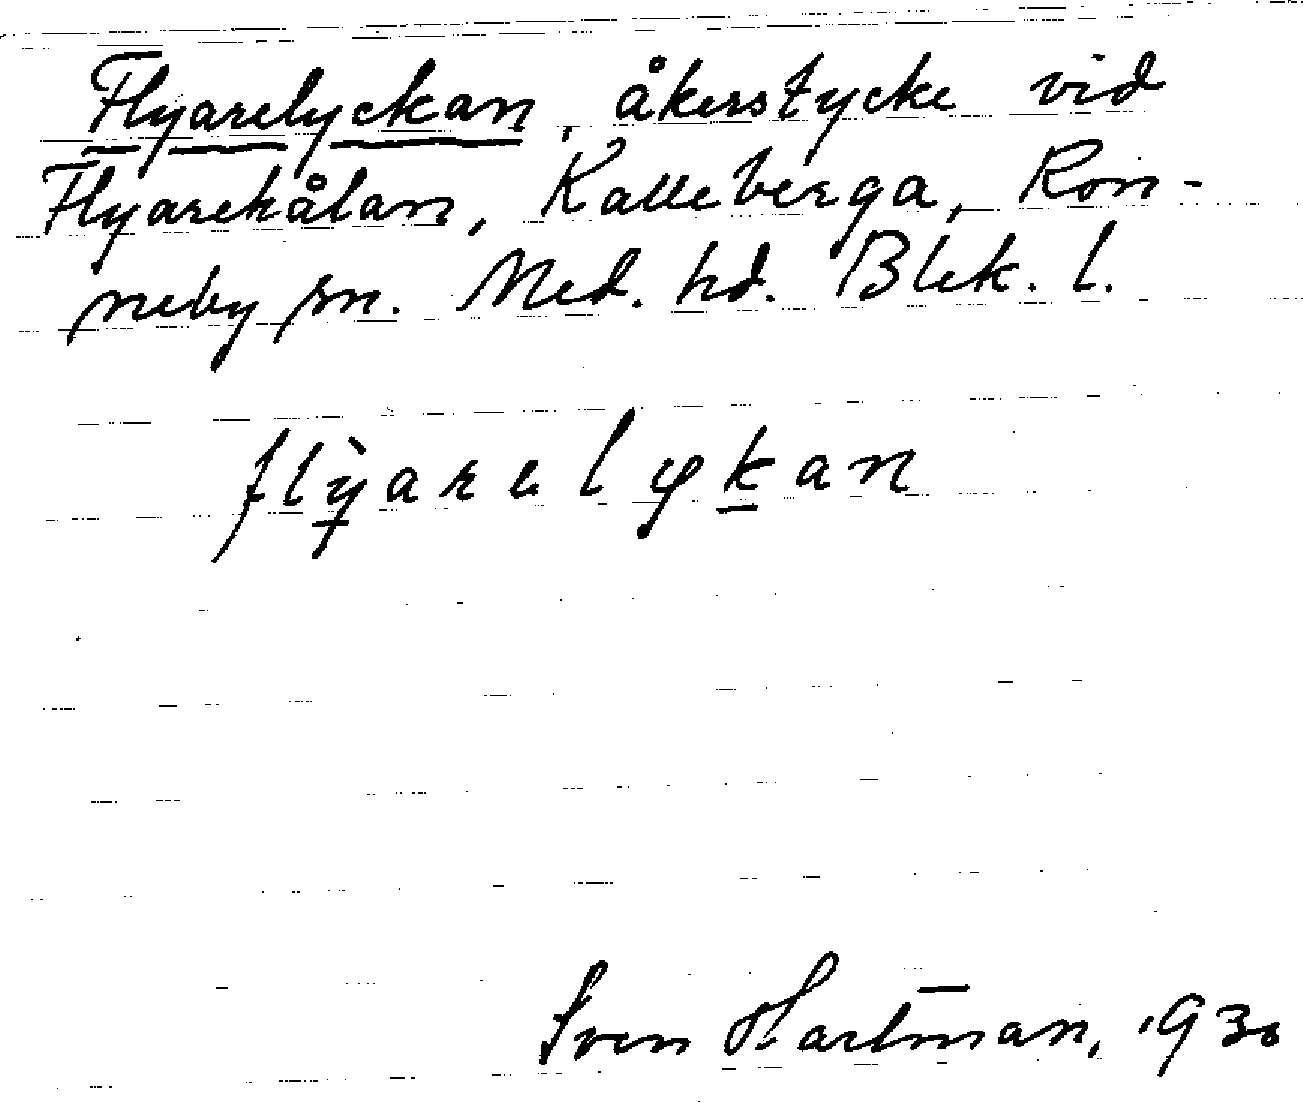 Flyarelyckan, åkerstycke vid
Flyarekålan, Kalleberga, Ron-
neby sn. Med. hd. Blek. l.
flỳarelykan
Sven Hartman, 1930